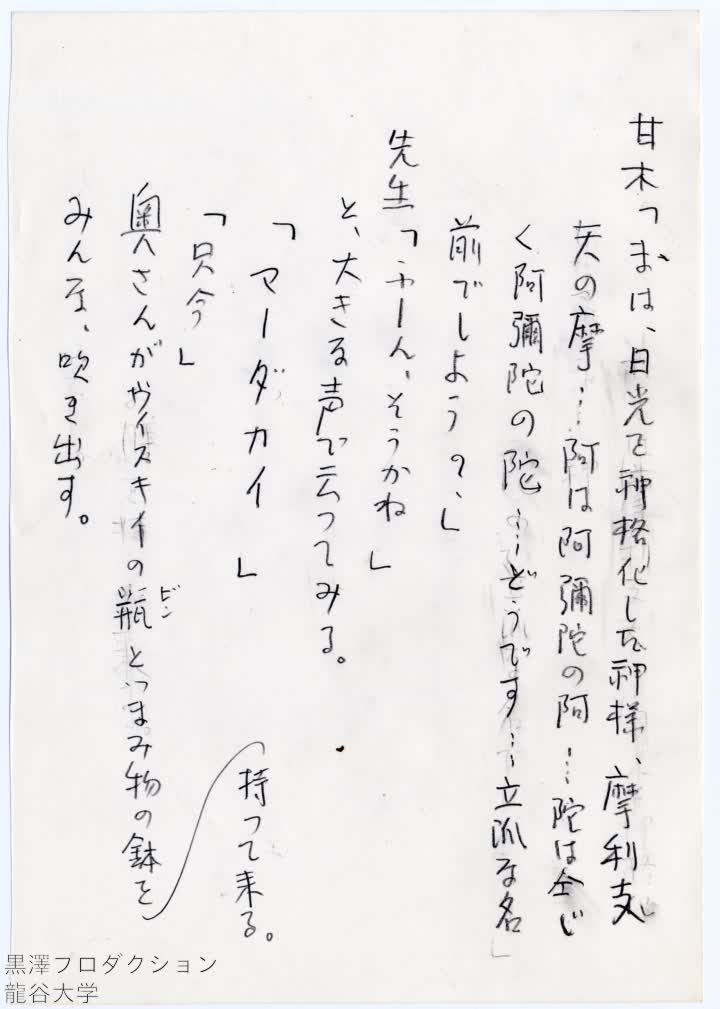 甘木「まは、日光を神格化した神様、摩利支
天の摩…阿は阿彌陀の阿…陀は仝じ
く阿彌陀の陀…どうです…立派な名
前でしようの、」
先生「ふーん、そうかね」
と、大きな声で云つてみる。
「マーダカイ」
「只今」
奥さんがウイスキイの瓶とつまみ物の鉢を
ビン
持つて来る。
みんな、吹き出す。
黒澤プロダクション
龍谷大学